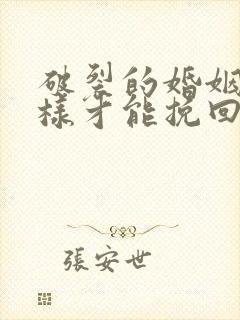 破裂的婚姻
樣才能挽回
張安世